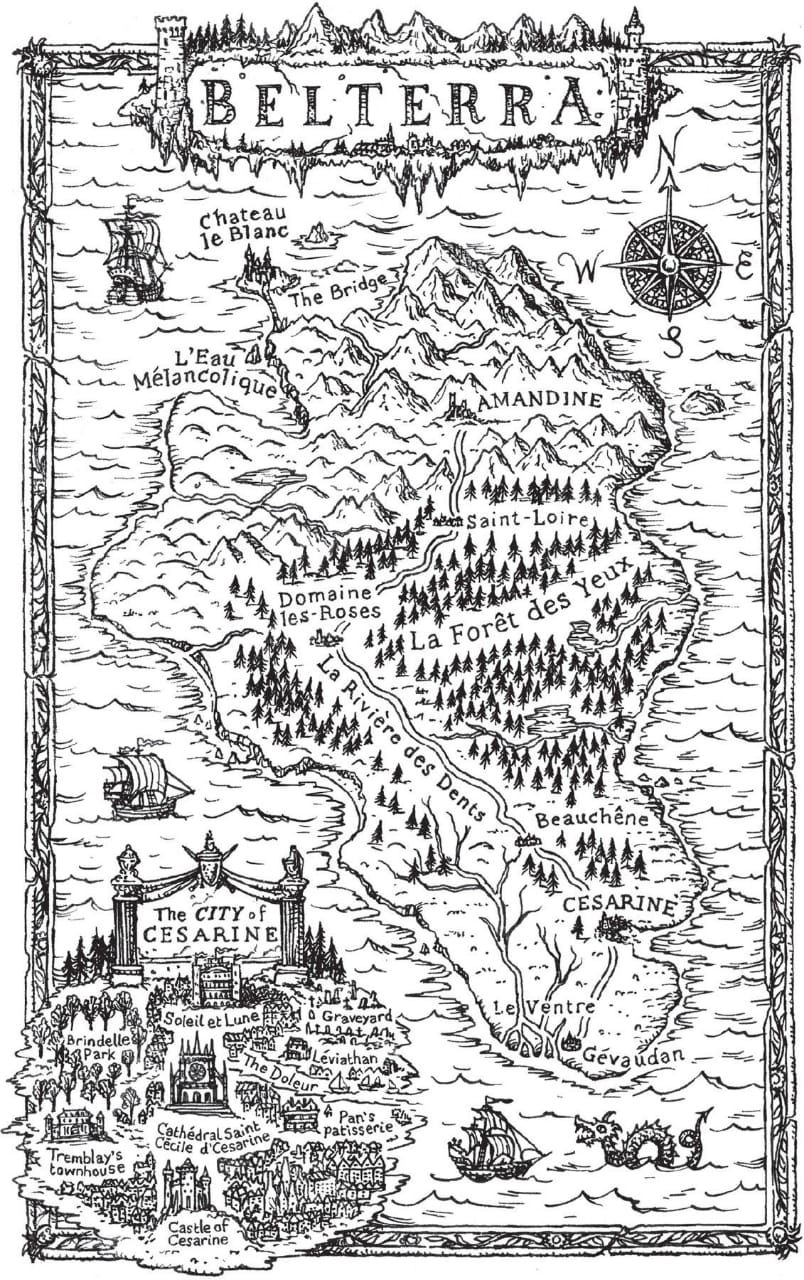 BELTERRA
N
W
E
S
Chateau
le Blanc
The Bridge
L'Eau
Mélancolique
AMANDINE
Saint-Loire
Domaine
les-Roses
La Forêt des Yeux
La Rivière des Dents
Beauchêne
CESARINE
Le Ventre
Gévaudan
The CITY of
CESARINE
Soleil et Lune
Graveyard
Brindelle
Park
Léviathan
The Doleur
Pan's
patisserie
Cathédral Saint
Cécile d'Cesarine
Tremblay's
townhouse
Castle of
Cesarine